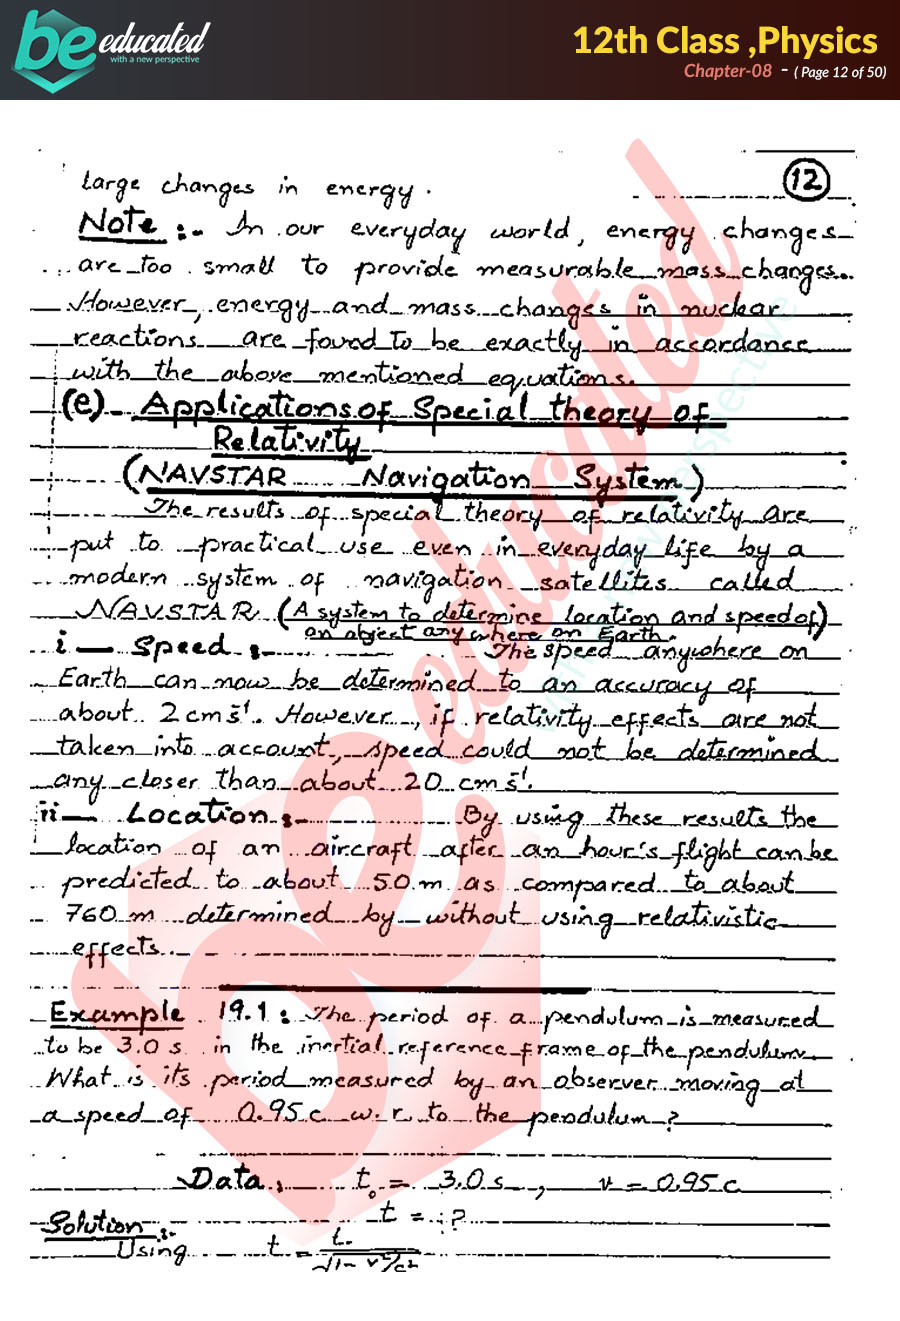 be educated
with a new perspective
12th Class ,Physics
Chapter-08 - ( Page 12 of 50)
12
large changes in energy.
Note :- In our everyday world, energy changes
are too small to provide measurable mass changes.
However, energy and mass changes in nuclear
reactions are found to be exactly in accordance
with the above mentioned equations.
(e)- Applications of Special theory of
Relativity
(NAVSTAR Navigation System)
The results of special theory of relativity are
put to practical use even in everyday life by a
modern system of navigation satellites called
NAVSTAR (A system to determine location and speed of)
an object any where on Earth.
i — Speed :- The speed anywhere on
Earth can now be determined to an accuracy of
about 2 cm s⁻¹. However, if relativity effects are not
taken into account, speed could not be determined
any closer than about 20 cm s⁻¹.
ii — Location :- By using these results the
location of an aircraft after an hour's flight can be
predicted to about 50 m as compared to about
760 m determined by without using relativistic
effects.
Example 19.1 : The period of a pendulum is measured
to be 3.0 s in the inertial reference frame of the pendulum.
What is its period measured by an observer moving at
a speed of 0.95 c w. r. to the pendulum ?
Data: t₀ = 3.0 s , v = 0.95 c
t = ?
Solution :-
Using t = t₀ / √1 - v²/c²
be educated
with a new perspective